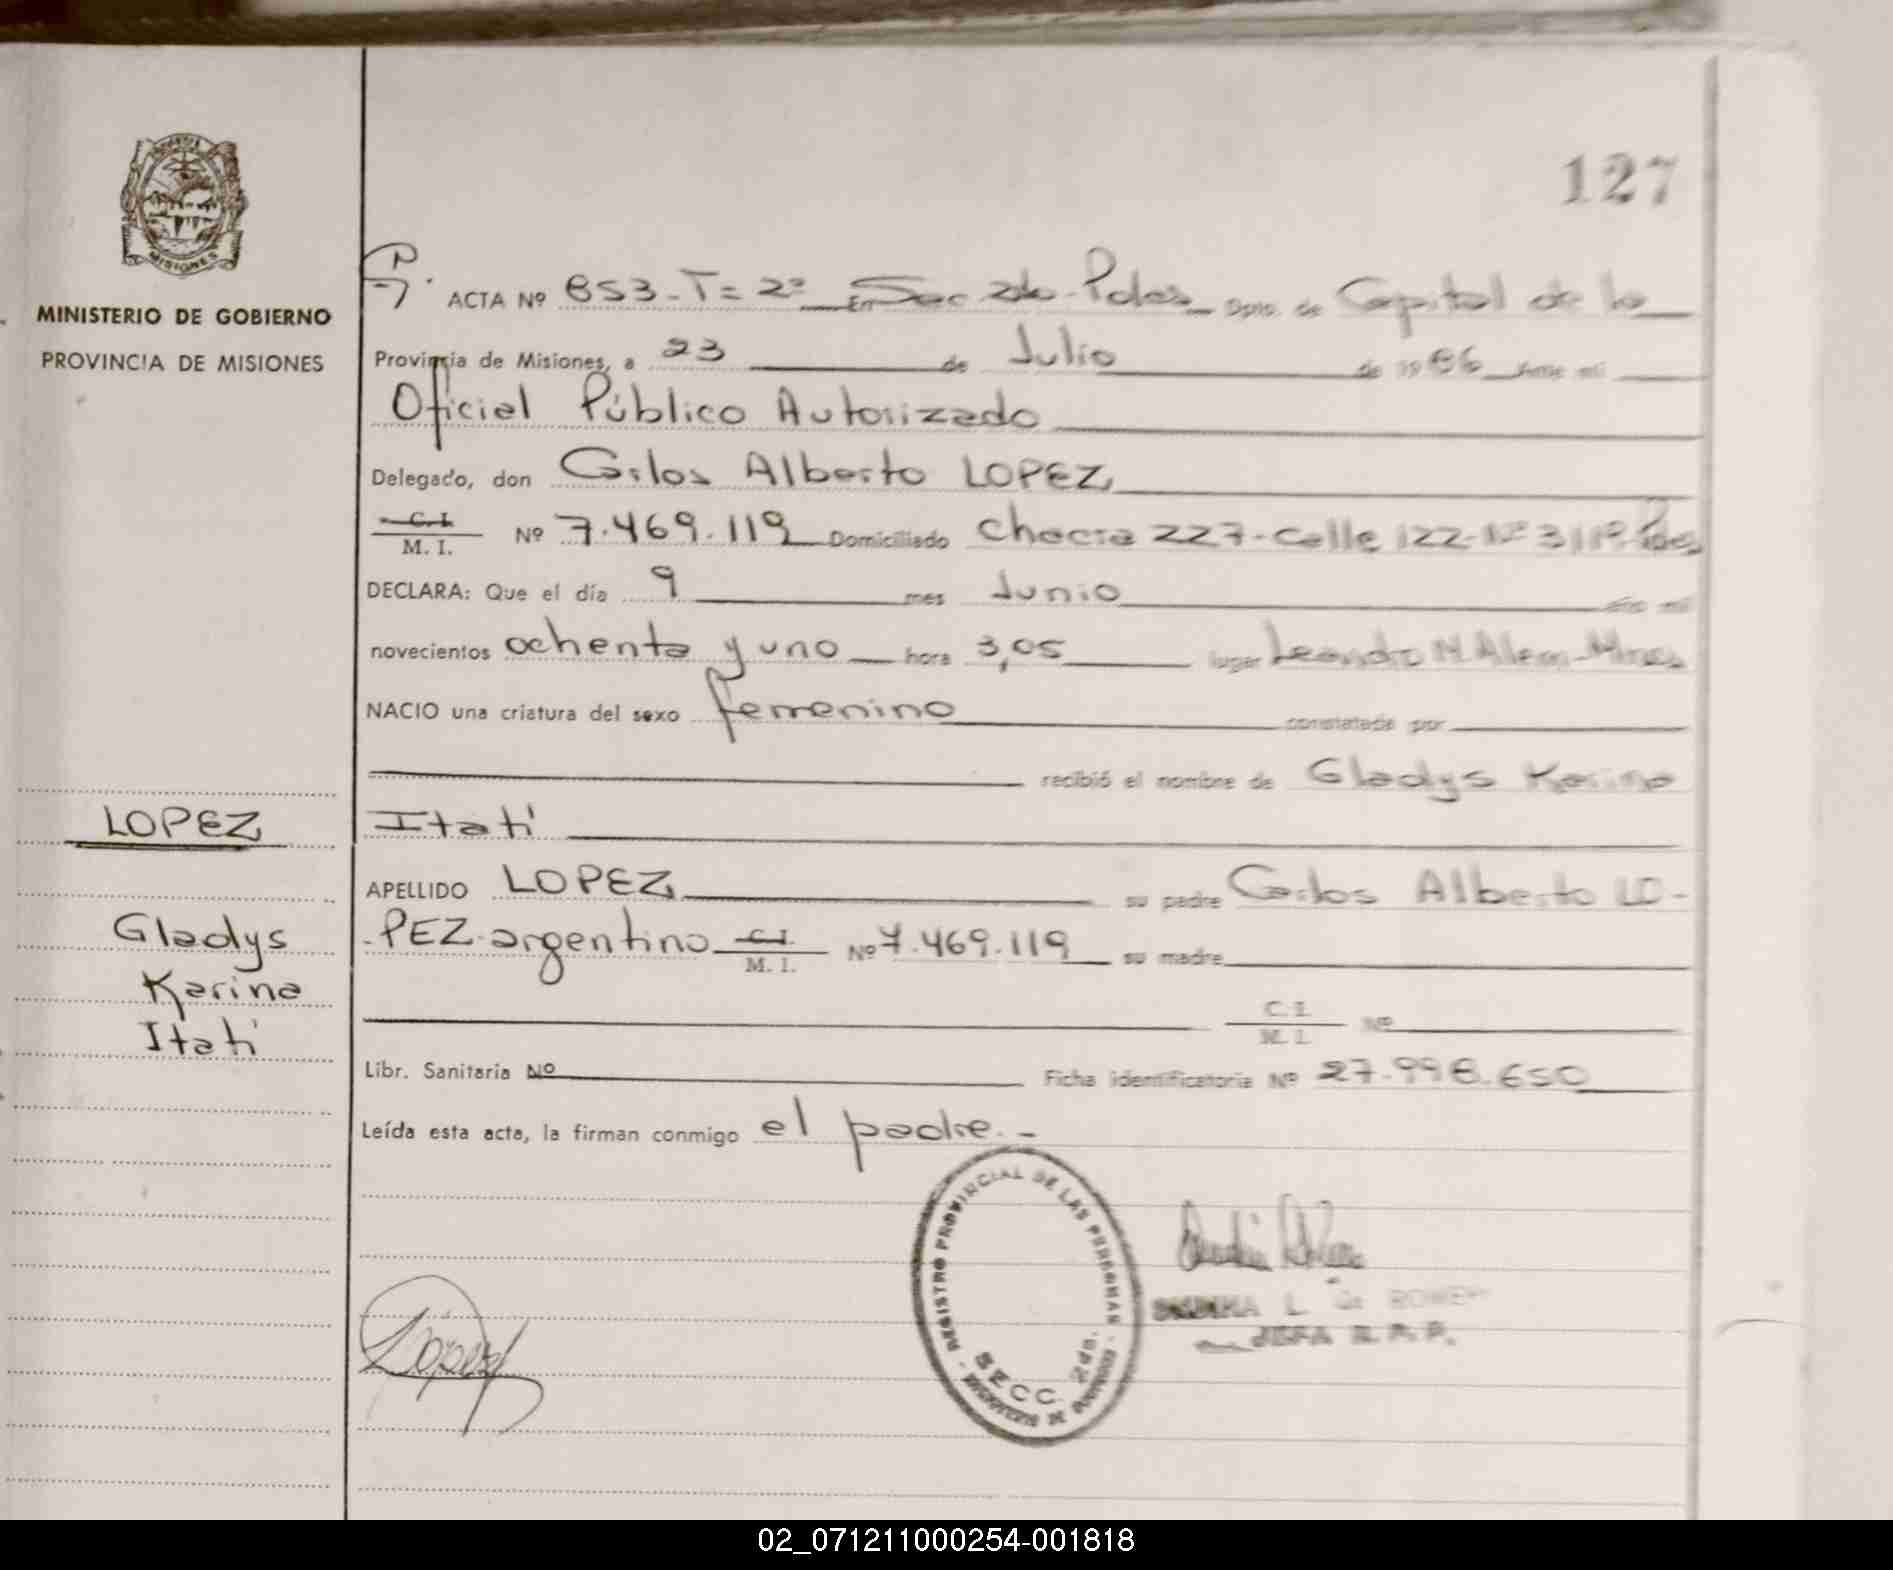 127
MISIONES
MINISTERIO DE GOBIERNO
PROVINCIA DE MISIONES
ACTA Nº 853-T=2º En Secc 2da Pdas Dpto. de Capital de la
Provincia de Misiones, a 23 de Julio de 1986 Ante mi
Oficial Público Autorizado
Delegado, don Carlos Alberto LOPEZ
C.I. M. I. Nº 7.469.119 Domiciliado Chacra 227-calle 122-Nº 3119 Pdas
DECLARA: Que el día 9 mes Junio año mil
novecientos ochenta y uno hora 3,05 lugar Leandro N. Alem-Mnes
NACIO una criatura del sexo femenino constatada por
recibió el nombre de Gladys Karina
Itatí
APELLIDO LOPEZ su padre Carlos Alberto LO-
-PEZ-argentino C.I. M. I. Nº 7.469.119 su madre
C.I. M. I. Nº
Libr. Sanitaria Nº Ficha identificatoria Nº 27.998.650
Leída esta acta, la firman conmigo el padre.-
LOPEZ
Gladys
Karina
Itatí
REGISTRO PROVINCIAL DE LAS PERSONAS
SECC. 2da.
López
L. de
JEFA R. P. P.
02_071211000254-001818